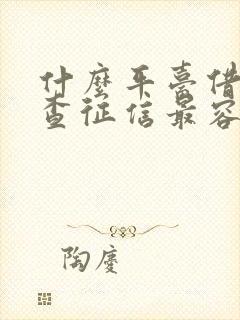 什麼平臺借
查征信最容
陶慶